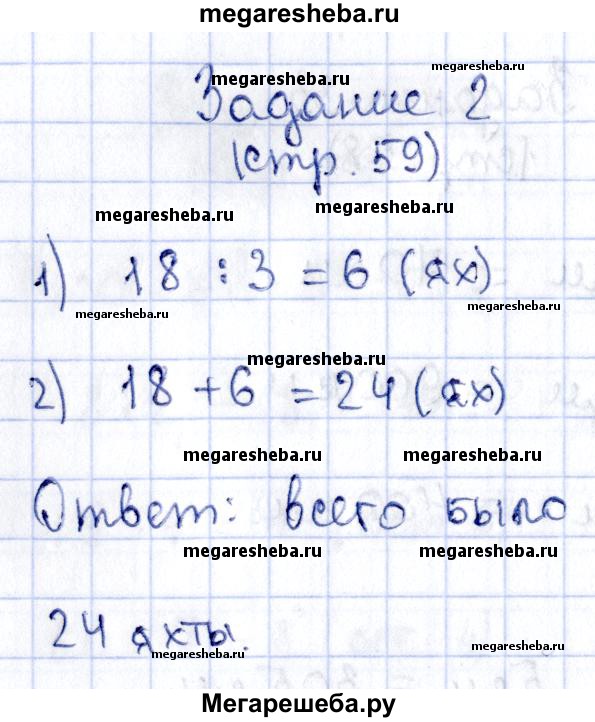 megaresheba.ru
megaresheba.ru
megaresheba.ru
Задание 2
(стр. 59)
megaresheba.ru
megaresheba.ru
1) 18 : 3 = 6 (ях)
megaresheba.ru
megaresheba.ru
megaresheba.ru
2) 18 + 6 = 24 (ях)
megaresheba.ru
megaresheba.ru
Ответ: всего было
megaresheba.ru
megaresheba.ru
24 яхты.
megaresheba.ru
megaresheba.ru
Мегарешеба.ру